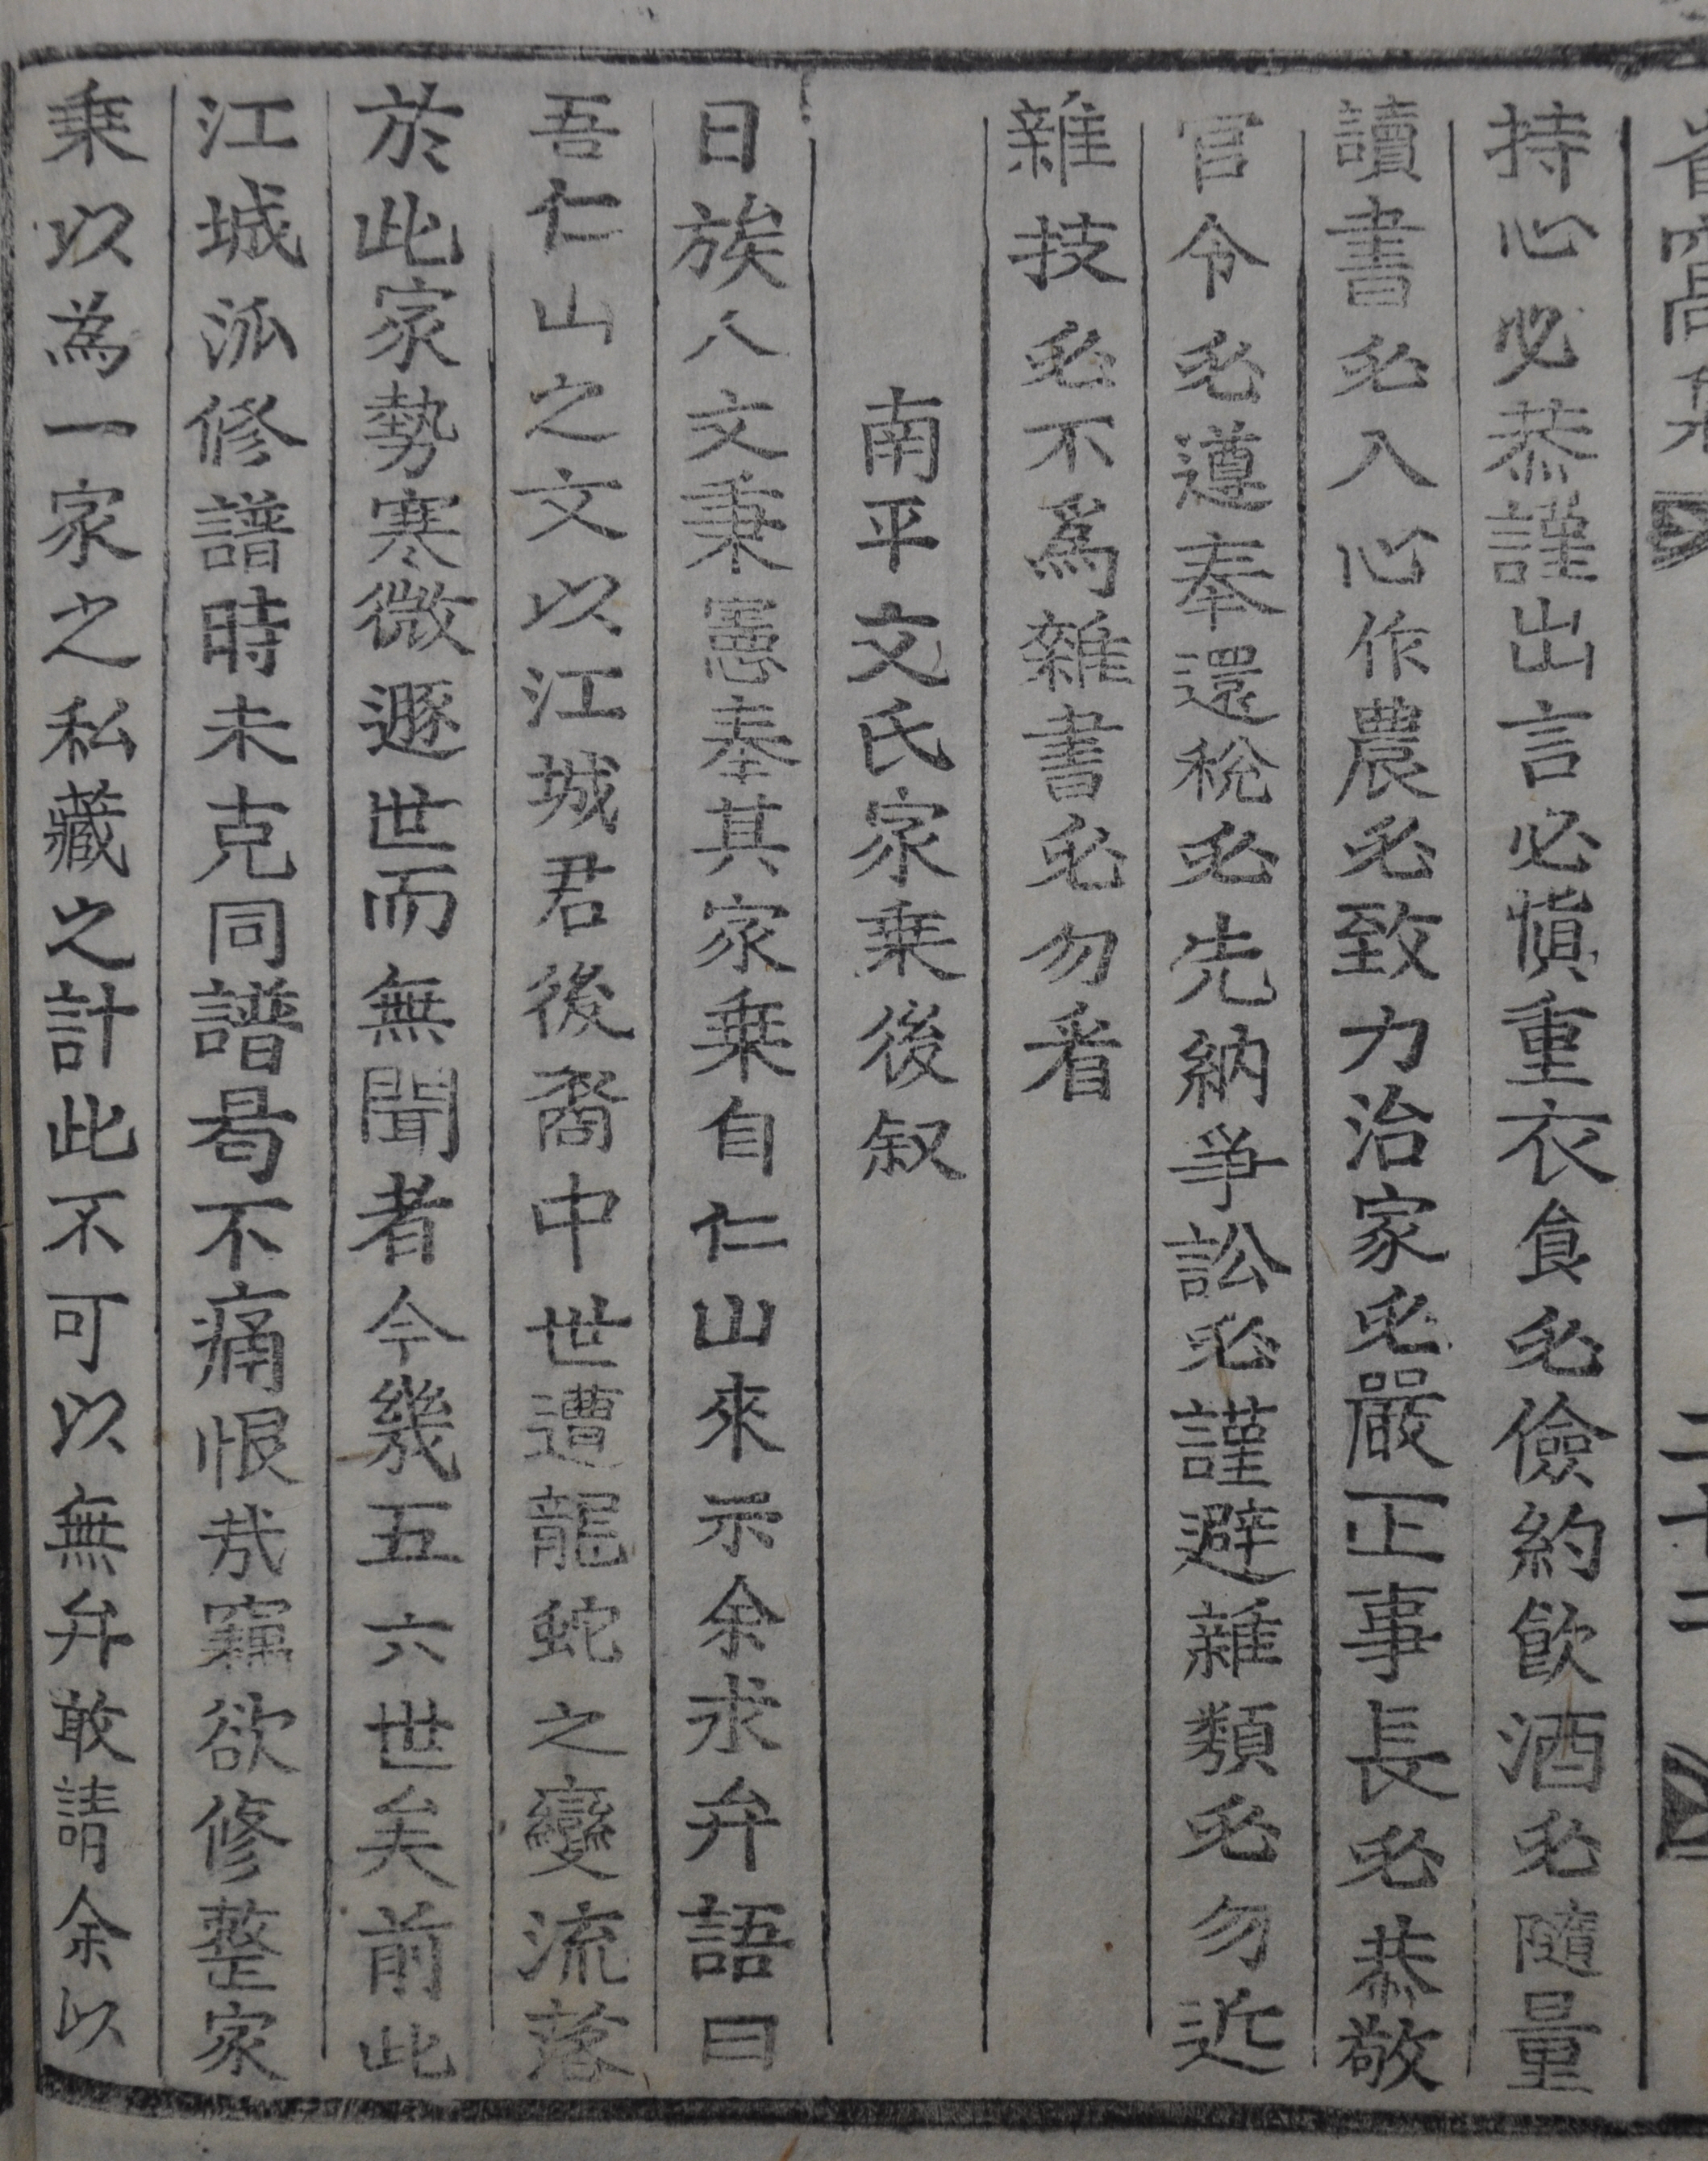 持心必恭謹出言必愼重衣食必儉約飮酒必隨量
讀書必入心作農必致力治家必嚴正事長必恭敬
官令必遵奉還稅必先納爭訟必謹避雜類必勿近
雜技必不爲雜書必勿看
南平文氏家乗後叙
日族人文秉憲奉其家乗自仁山來示余求弁語曰
吾仁山之文以江城君後裔中世遭龍蛇之變流落
於此家勢寒微遯世而無聞者今幾五六世矣前此
江城派修譜時未克同譜曷不痛恨哉竊欲修整家
乗以為一家之私藏之計此不可以無弁敢請余以